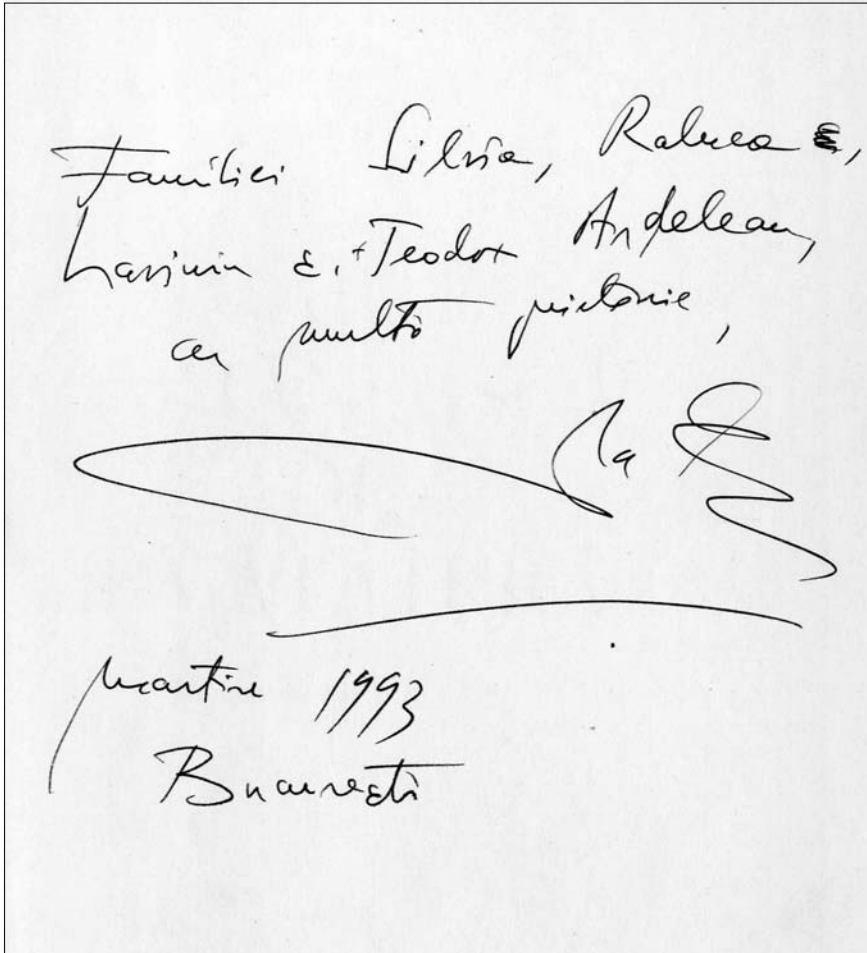 Familiei Silvia, Raluca,
Lavinia &. + Teodor Ardelean,
cu multă prietenie,
martie 1993
București